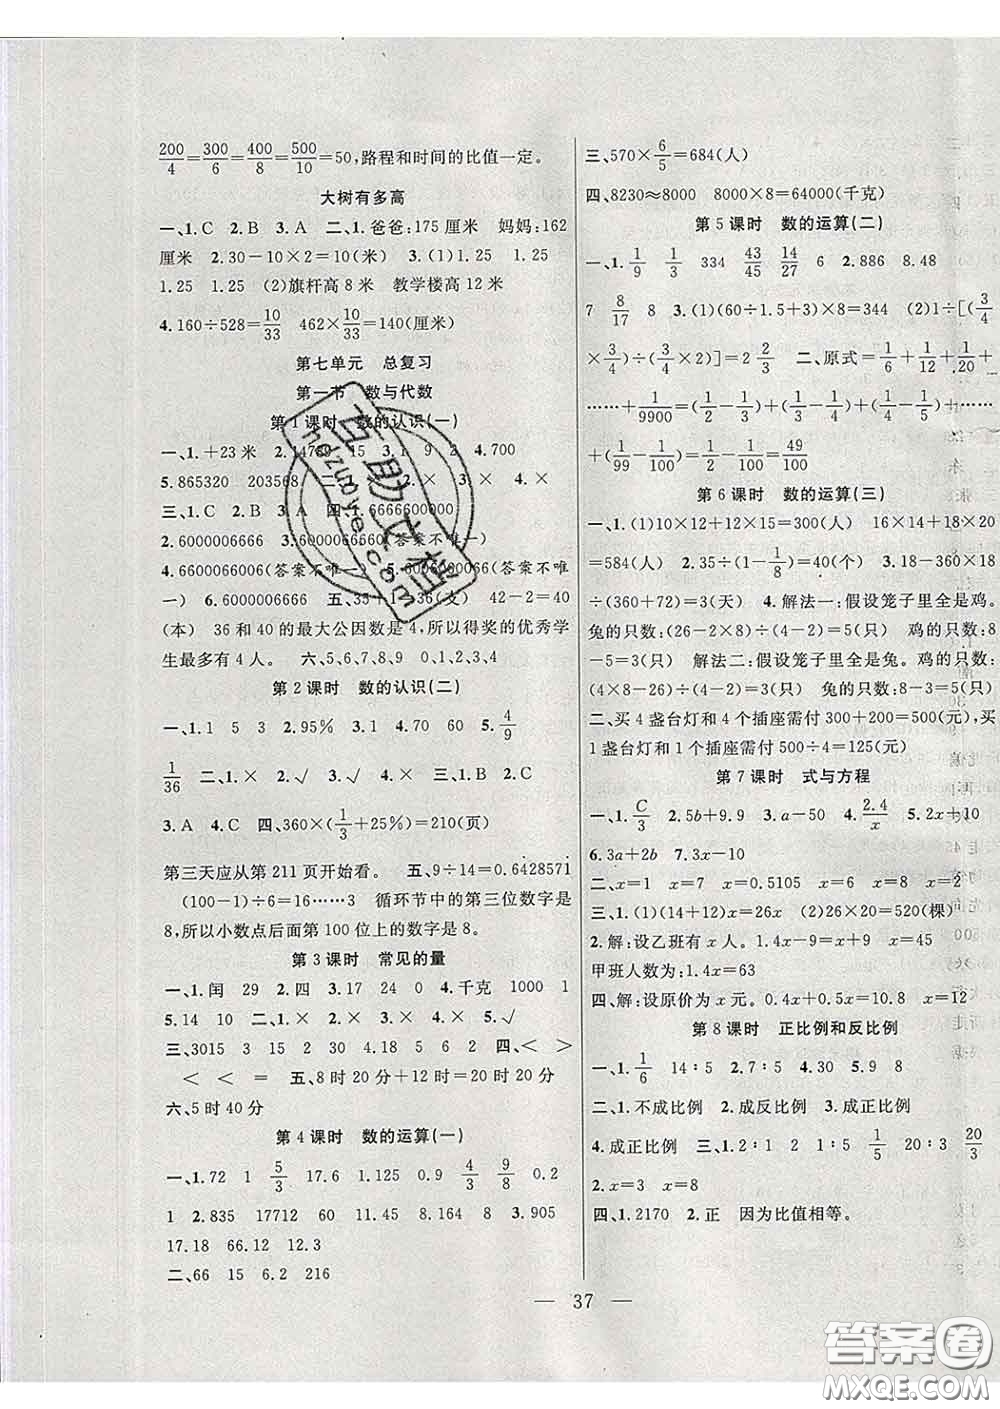 200/4=300/6=400/8=500/10=50,路程和时间的比值一定。
大树有多高
一、1.C 2.B 3.A 二、1.爸爸:175 厘米 妈妈:162
厘米 2.30-10×2=10(米) 3.(1)1.25 1.25
1.25 1.25 (2)旗杆高 8 米 教学楼高 12 米
4.160÷528=10/33 462×10/33=140(厘米)
第七单元 总复习
第一节 数与代数
第 1 课时 数的认识(一)
一、1.+23 米 2.14789 15 3.1 9 2 4.700
5.865320 203568 二、1. 2.√ 3.× 4.×
三、1.C 2.B 3.A 四、1.6666600000
2.6000006666 3.6000066660(答案不唯一)
4.6600066006(答案不唯一) 5.6006006066(答案不唯
一) 6.6000006666 五、35+1=36(支) 42-2=40
(本) 36 和 40 的最大公因数是 4,所以得奖的优秀学
生最多有 4 人。 六、5、6、7、8、9 0、1、2、3、4
第 2 课时 数的认识(二)
一、1.1 5 3 2.95% 3.1 4.70 60 5.4/9
1/36 二、1.× 2.√ 3.√ 4.× 三、1.B 2.C
3.A 4.C 四、360×(1/3+25%)=210(页)
第三天应从第 211 页开始看。 五、9÷14=0.6428571
(100-1)÷6=16……3 循环节中的第三位数字是
8,所以小数点后面第 100 位上的数字是 8。
第 3 课时 常见的量
一、1.闰 29 2.四 3.17 24 0 4.千克 1000 1
5.14 10 二、1.× 2.× 3.× 4.× 5.√
三、3015 3 15 2 30 4.18 5 6 2 四、< >
< < = 五、8 时 20 分+12 时=20 时 20 分
六、5 时 40 分
第 4 课时 数的运算(一)
一、1.72 1 5/3 17.6 1.125 0.9 4/3 9/8 0.2
1 2.835 17712 60 11.45 8.164 8 3.905
17.18 66.12 12.3
二、66 15 6.2 216
三、570×6/5=684(人)
四、8230≈8000 8000×8=64000(千克)
第 5 课时 数的运算(二)
一、1.1/9 1/3 334 43/45 14/27 6 2.886 8.48
7 8/17 8 3.(1)(60÷1.5+3)×8=344 (2)1÷[(3/4
×3/4)÷(3/4×3/4)]=2 2/3 二、原式=1/6+1/12+1/20+
……+1/9900=(1/2-1/3)+(1/3-1/4)+(1/4-1/5)+……
+(1/99-1/100)=1/2-1/100=49/100
第 6 课时 数的运算(三)
一、1.(1)10×12+12×15=300(人) 16×14+18×20
=584(人) 2.35÷(1-1/8)=40(个) 3.18-360×18
÷(360+72)=3(天) 4.解法一:假设笼子里全是鸡。
兔的只数:(26-2×8)÷(4-2)=5(只) 鸡的只数:
8-5=3(只) 解法二:假设笼子里全是兔。鸡的只数:
(4×8-26)÷(4-2)=3(只) 兔的只数:8-3=5(只)
二、买 4 盏台灯和 4 个插座需付 300+200=500(元),买
1 盏台灯和 1 个插座需付 500÷4=125(元)
第 7 课时 式与方程
一、1.C/3 2.5b+9.9 3.a-50 4.2.4/x 5.2x+10
6.3a+2b 7.3x-10
二、x=1 x=7 x=0.5105 x=2 x=8 x=2
三、1.(1)(14+12)x=26x (2)26×20=520(棵)
2.解:设乙班有 x 人。1.4x-9=x+9 x=45
甲班人数为:1.4x=63
四、解:设原价为 x 元。0.4x+0.5x=10.8 x=12
第 8 课时 正比例和反比例
一、1.1/6 14∶5 2.7∶5 3.2 4.30 5.9 8
二、1.不成比例 2.成反比例 3.成正比例
4.成正比例 三、1.2∶1 2 1∶5 1/5 20∶3 20/3
2.x=3 x=8
四、1.2170 2.正 因为比值相等。
37
互助文档
hdzuoye.com
答案圈
MXQE.COM